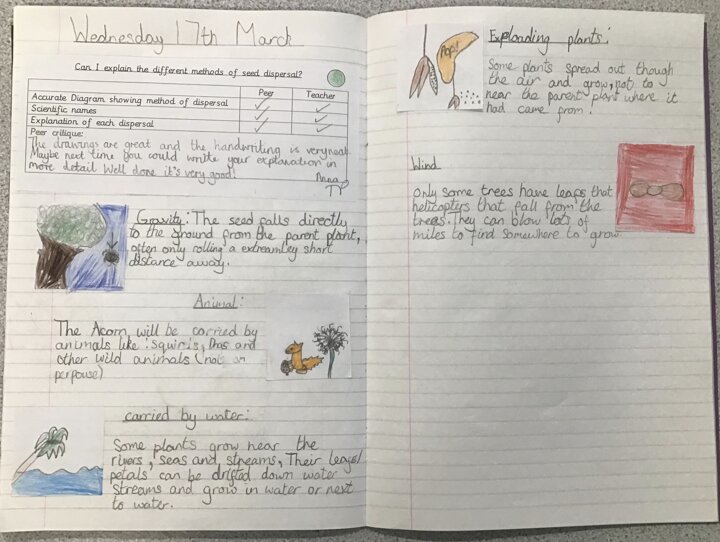 Wednesday 17th March
Can I explain the different methods of seed dispersal?
Peer Teacher
Accurate Diagram showing method of dispersal ✓ ✓
Scientific names ✓ ✓
Explanation of each dispersal ✓ ✓
Peer critique:
The drawings are great and the handwriting is very neat.
Maybe next time you could write your explanation in
more detail Well done it's very good!
Anna
Gravity: The seed falls directly
to the ground from the parent plant,
often only rolling a extreamley short
distance away.
Animal:
The Acorn will be carried by
animals like squiris, and
other wild animals (not on
perpouse)
carried by water:
Some plants grow near the
rivers, seas and streams, Their leags/
petals can be drifted down water
streams and grow in water or next
to water.
Pop!
Exploading plants:
Some plants spread out though
the air and grow, not to
near the parent plant where it
had came from.
Wind
Only some trees have leags that
helicopters that fall from the
trees. They can blow lots of
miles to find somewhere to grow.